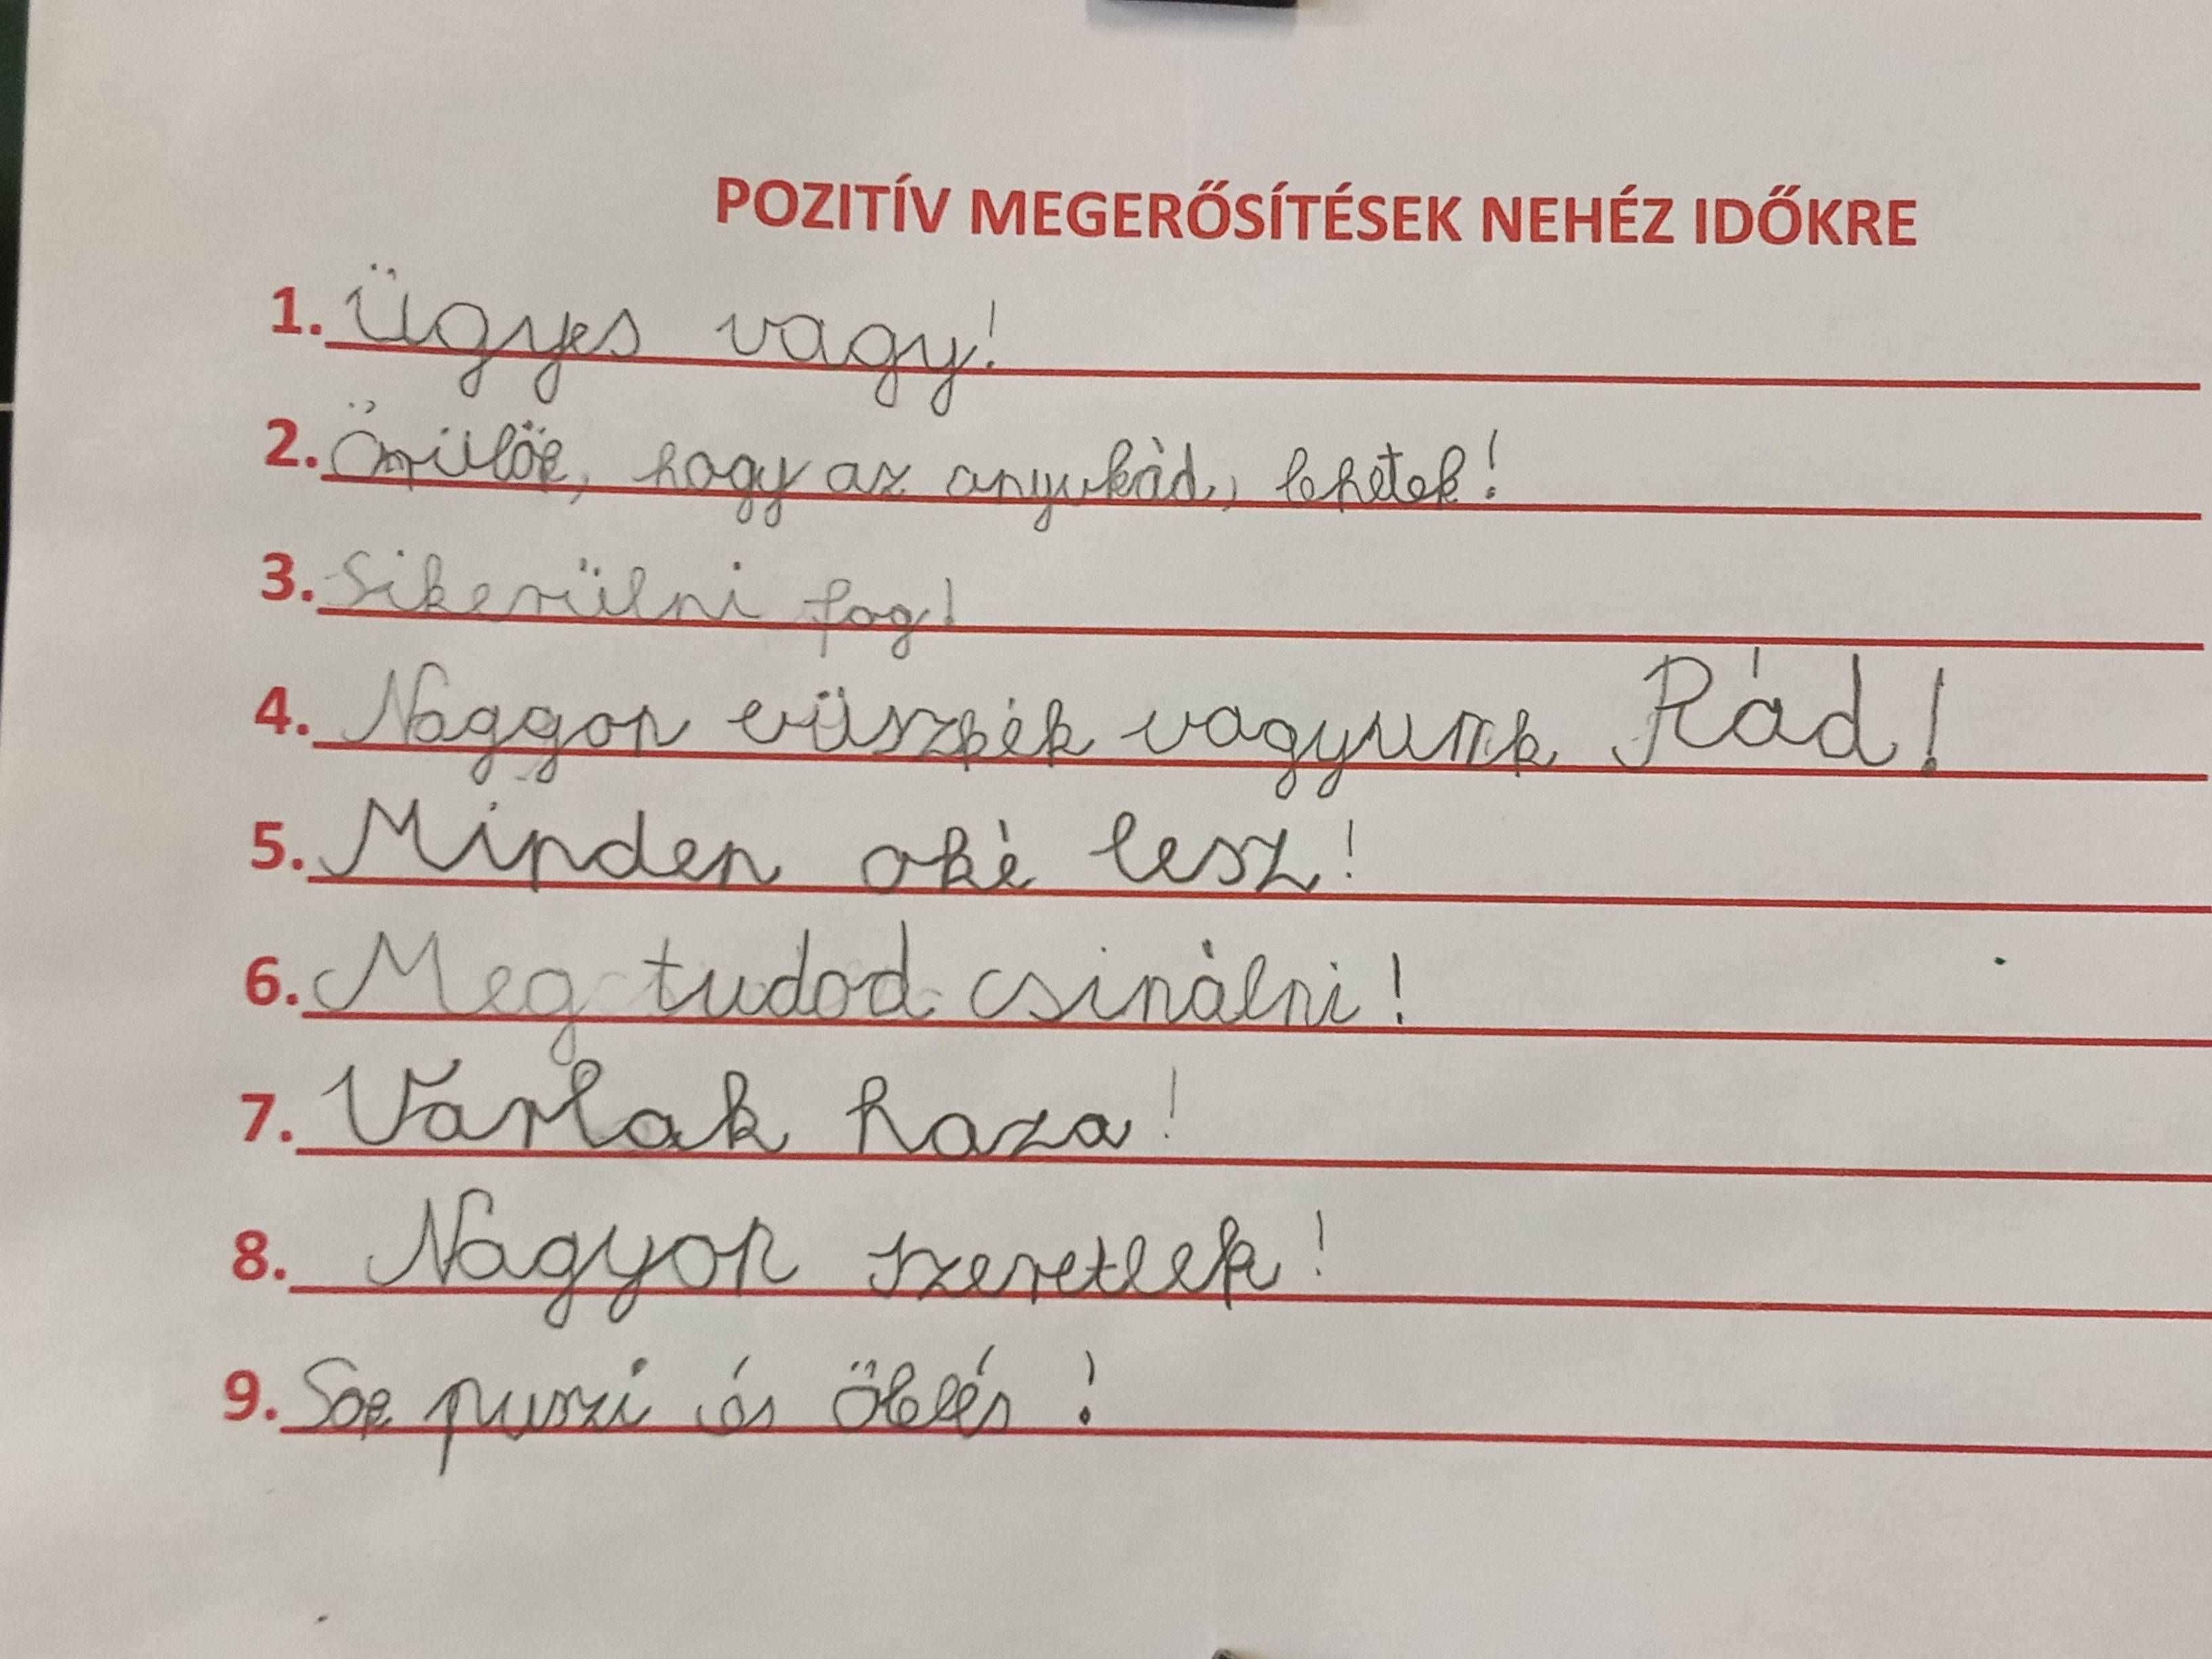 POZITÍV MEGERŐSÍTÉSEK NEHÉZ IDŐKRE
1. Ügyes vagy!
2. hogy az anyukád, lehetek!
3. Sikerülni fog!
4. Naggyon vagyunk Rád!
5. Minden oké lesz!
6. Meg tudod csinálni!
7. Várlak haza!
8. Nagyon szeretlek!
9. puszi és ölelés!